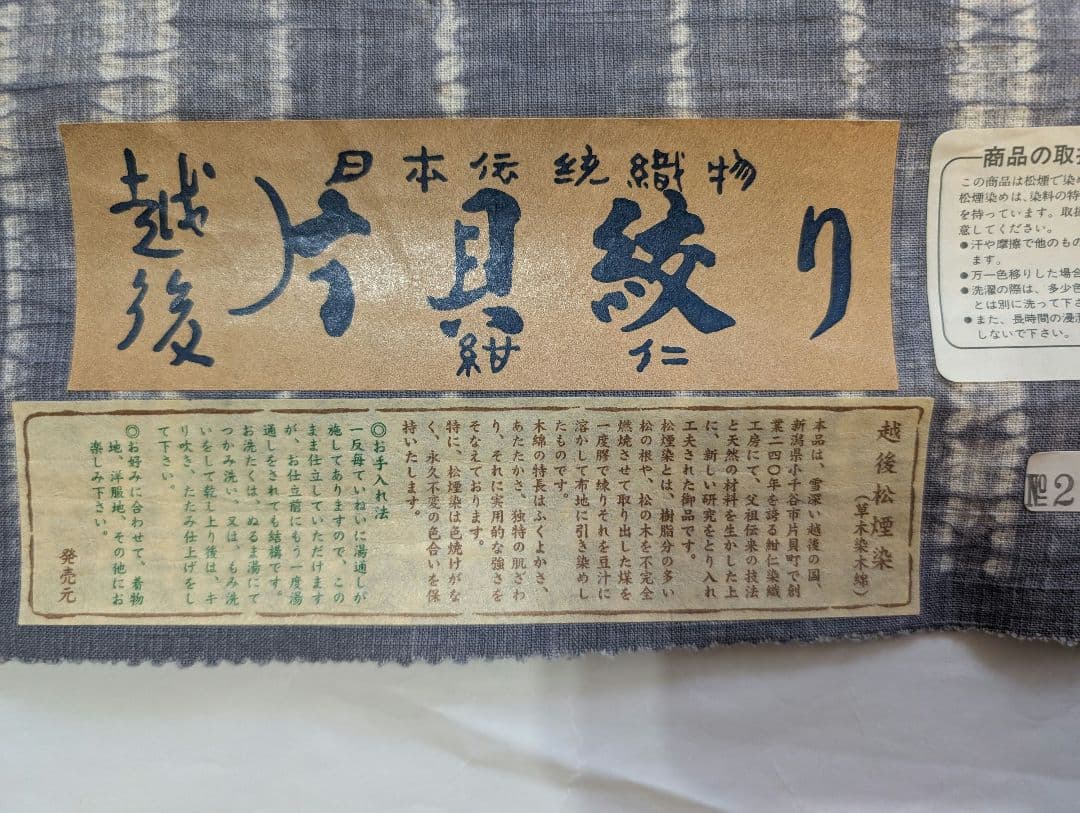 日本伝統織物
越後
片貝絞り
紺仁
越後松煙染
(草木染木綿)
本品は、雪深い越後の国、
新潟県小千谷市片貝町で創
業二四〇年を誇る紺仁染織
工房にて、父祖伝来の技法
と天然の材料を生かした上
に、新しい研究をとり入れ
工夫された御品です。
松煙染とは、樹脂分の多い
松の根や、松の木を不完全
燃焼させて取り出した煤を
一度膠で練りそれを豆汁に
溶かして布地に引き染めし
たものです。
木綿の特長はふくよかさ、
あたたかさ、独特の肌ざわ
り、それに実用的な強さを
そなえております。
特に、松煙染は色焼けがな
く、永久不変の色合いを保
持いたします。
◎お手入れ法
一反毎ていねいに湯通しが
施してありますので、この
まま仕立していただけます
が、お仕立前にもう一度湯
通しをされても結構です。
お洗たくは、ぬるま湯にて
つかみ洗い、又は、もみ洗
いをして乾し上り後は、キ
リ吹き、たたみ仕上げをし
て下さい。
◎お好みに合わせて、着物
地、洋服地、その他にお
楽しみ下さい。
発売元
商品の取
この商品は松煙で染
松煙染めは、染料の特
を持っています。取
意してください。
●汗や摩擦で他のもの
ます。
●万一色移りした場合
●洗濯の際は、多少色
とは別に洗って下さ
●また、長時間の浸
しないで下さい。
2